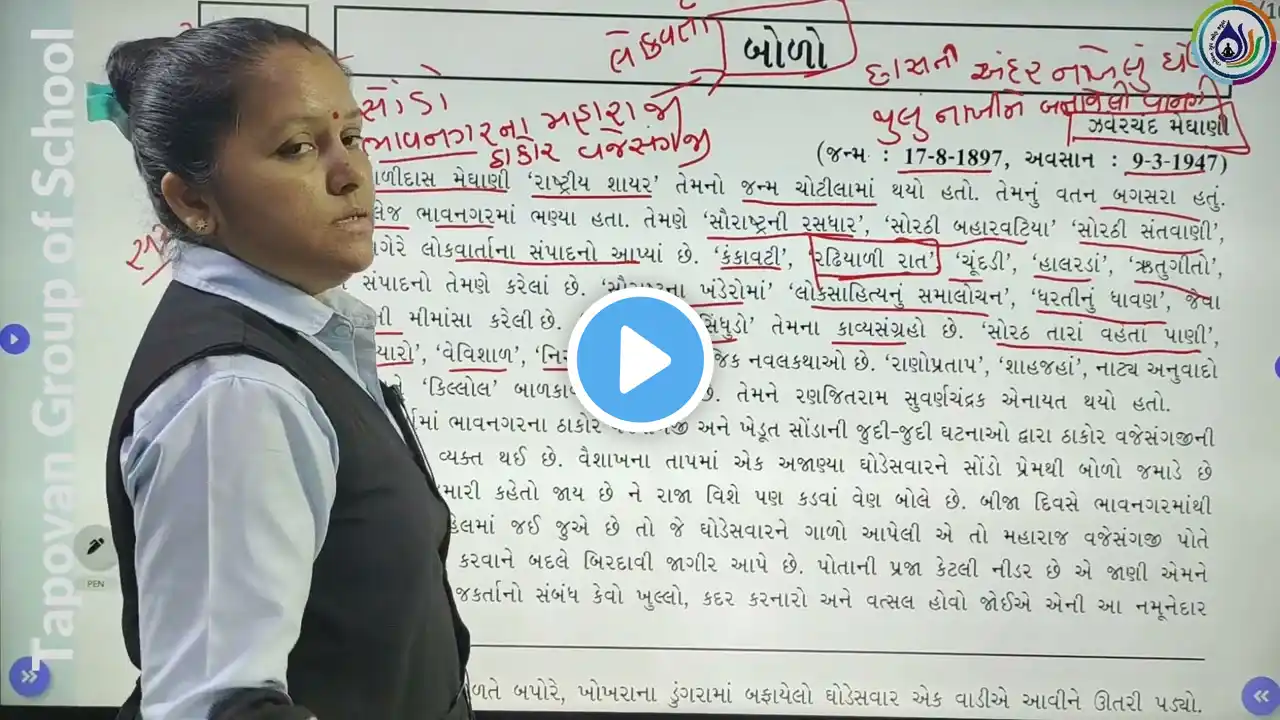 લોકવાર્તા
બોળો
છાસની અંદર નાખેલું
સોંડો
ભાવનગરના મહારાજા
ઠાકોર વજેસંગજી
ઝવરચંદ મેઘાણી
(જન્મ : 17-8-1897, અવસાન : 9-3-1947)
મેઘાણી ‘રાષ્ટ્રીય શાયર’ તેમનો જન્મ ચોટીલામાં થયો હતો. તેમનું વતન બગસરા હતું.
ભાવનગરમાં ભણ્યા હતા. તેમણે ‘સૌરાષ્ટ્રની રસધાર’, ‘સોરઠી બહારવટિયા’ ‘સોરઠી સંતવાણી’,
લોકવાર્તાના સંપાદનો આપ્યાં છે. ‘કંકાવટી’, ‘રઢિયાળી રાત’ ‘ચૂંદડી’, ‘હાલરડાં’, ‘ઋતુગીતો’,
સંપાદનો તેમણે કરેલાં છે. ‘સૌરાષ્ટ્રના ખંડેરોમાં’ ‘લોકસાહિત્યનું સમાલોચન’, ‘ધરતીનું ધાવણ’, જેવા
મીમાંસા કરેલી છે. તેમના કાવ્યસંગ્રહો છે. ‘સોરઠ તારાં વહેતા પાણી’,
‘વેવિશાળ’, નવલકથાઓ છે. ‘રાણોપ્રતાપ’, ‘શાહજહાં’, નાટ્ય અનુવાદો
‘કિલ્લોલ’ છે. તેમને રણજિતરામ સુવર્ણચંદ્રક એનાયત થયો હતો.
ભાવનગરના ઠાકોર અને ખેડૂત સોંડાની જુદી-જુદી ઘટનાઓ દ્વારા ઠાકોર વજેસંગજીની
વ્યક્ત થઈ છે. વૈશાખના તાપમાં એક અજાણ્યા ઘોડેસવારને સોંડો પ્રેમથી બોળો જમાડે છે
કહેતો જાય છે ને રાજા વિશે પણ કડવાં વેણ બોલે છે. બીજા દિવસે ભાવનગરમાંથી
જઈ જુએ છે તો જે ઘોડેસવારને ગાળો આપેલી એ તો મહારાજ વજેસંગજી પોતે
કરવાને બદલે બિરદાવી જાગીર આપે છે. પોતાની પ્રજા કેટલી નીડર છે એ જાણી એમને
સંબંધ કેવો ખુલ્લો, કદર કરનારો અને વત્સલ હોવો જોઈએ એની આ નમૂનેદાર
બપોરે, ખોખરાના ડુંગરામાં બફાયેલો ઘોડેસવાર એક વાડીએ આવીને ઊતરી પડ્યો.
PEN
Tapovan Group of School